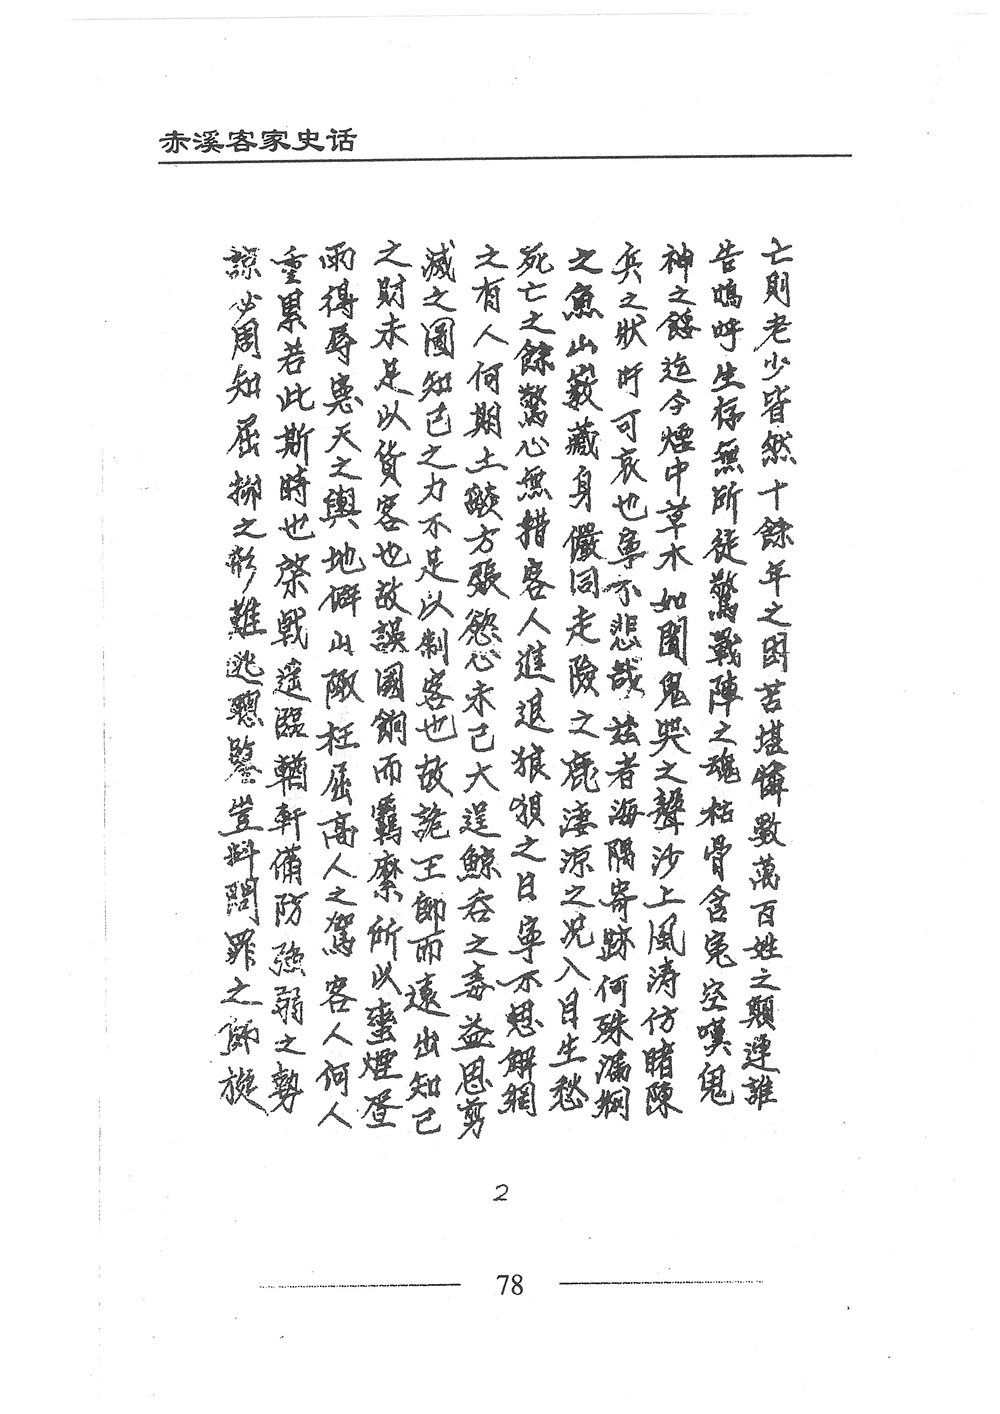 赤溪客家史话
亡則老少皆然十餘年之困苦堪憐數萬百姓之顛連誰
告嗚呼生存無所徒驚戰陣之魂枯骨含冤空嘆鬼
神之餒迄今煙中草木如聞鬼哭之聲沙上風濤仿睹陳
兵之狀吁可哀也寧不悲哉茲者海隅寄跡何殊漏網
之魚山藪藏身儼同走險之鹿淒涼之况入目生愁
死亡之餘驚心無措客人進退狼狽之日寧不想解網
之有人何期土燄方張慾心未已大逞鯨吞之毒益思剪
滅之圖知己之力不足以制客也故詭王師而遠出知己
之財未足以貨客也故誤國餉而羈縻所以蠻煙蜑
雨得辱惠天之輿地僻山陬枉屈高人之駕客人何人
重累若此斯時也棨戟遥臨輶軒備防強弱之勢
諒必周知屈抑之形難逃聰鑒豈料問罪之師旋
2
78